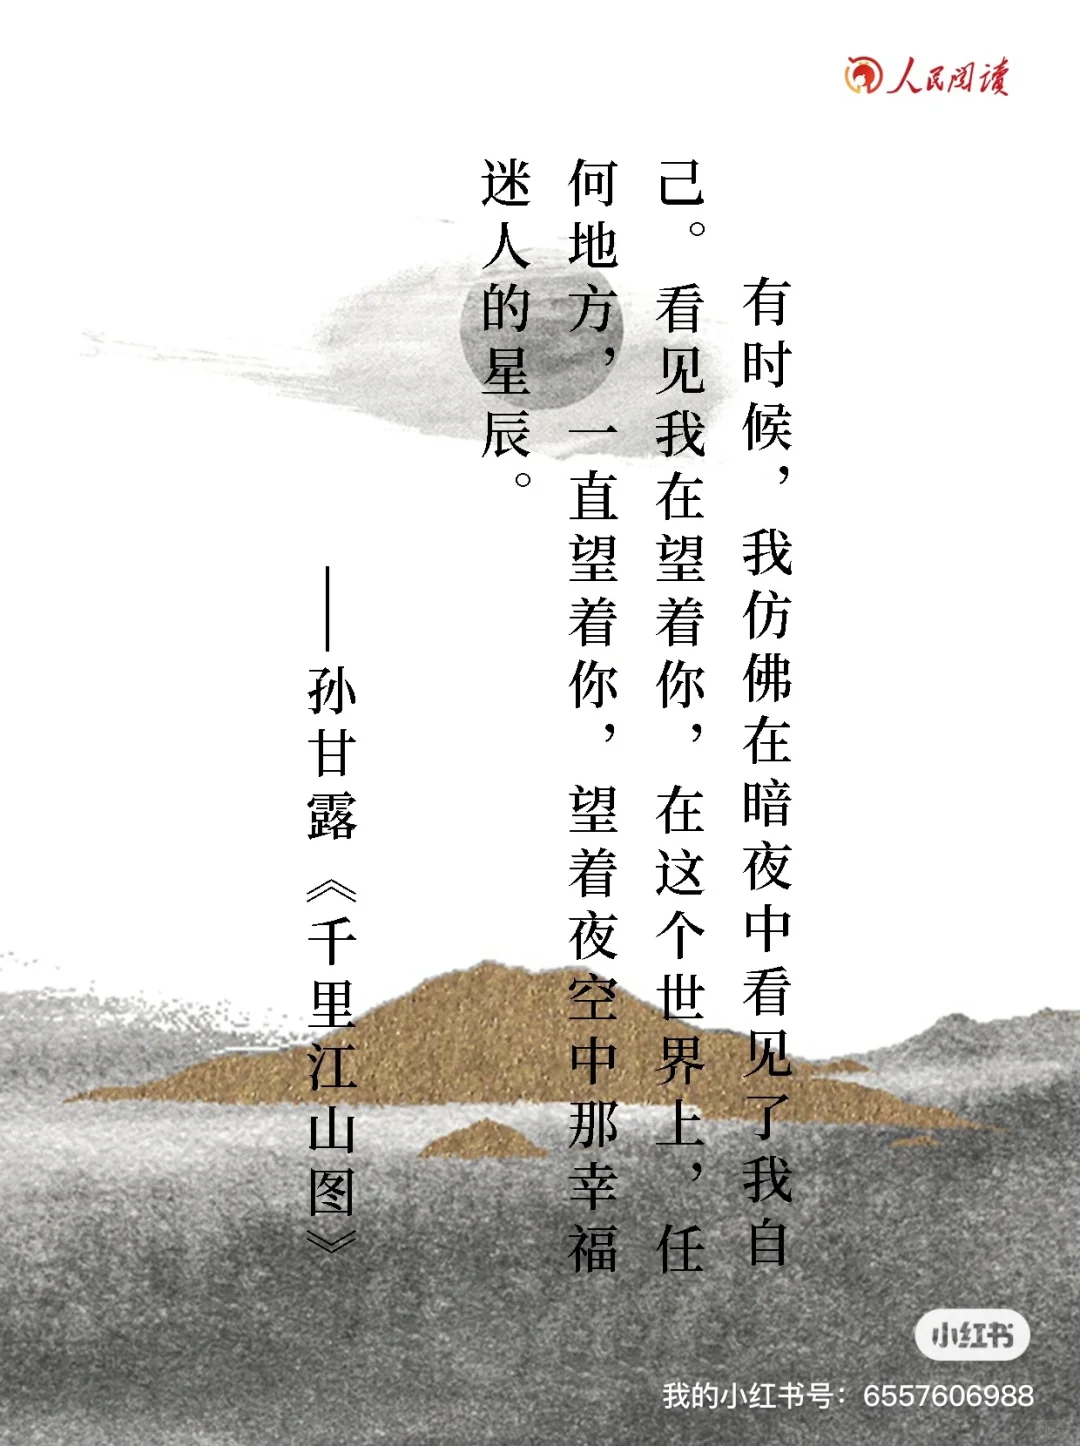 人民阅读
有时候，我仿佛在暗夜中看见了我自
己。看见我在望着你，在这个世界上，任
何地方，一直望着你，望着夜空中那幸福
迷人的星辰。
——孙甘露《千里江山图》
小红书
我的小红书号：6557606988